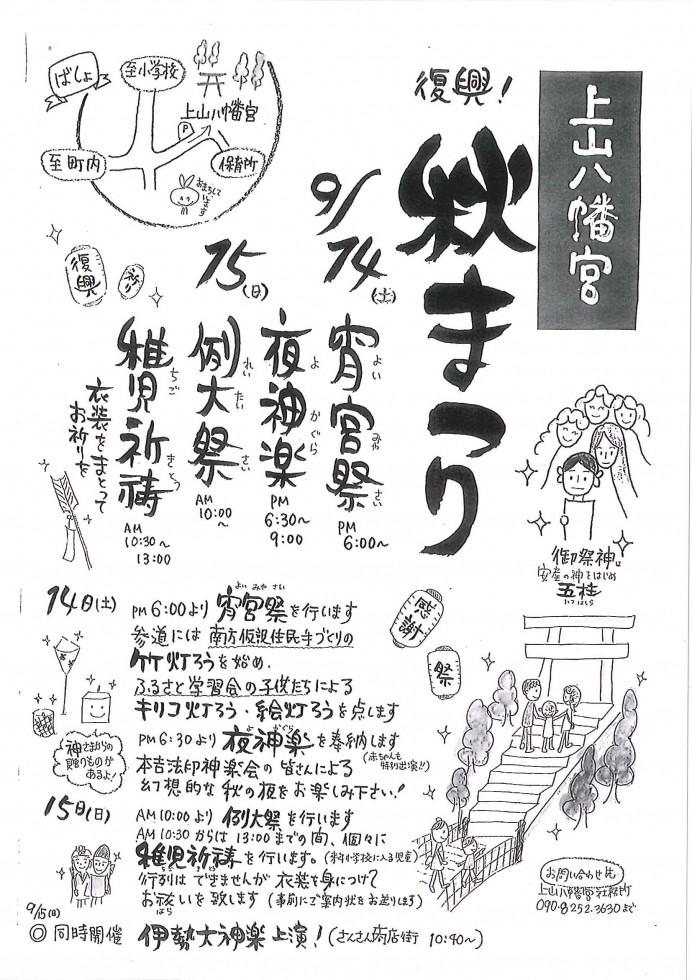 上山八幡宮
復興！
秋まつり
9/14(土)
宵宮祭
よい みや さい
PM
6:00〜
夜神楽
よ かぐら
PM
6:30〜
9:00
15(日)
例大祭
れい たい さい
AM
10:00
〜
稚児祈祷
ちご きとう
AM
10:30〜
13:00
衣装をまとって
お祈りを
ばしょ
至小学校
上山八幡宮
P
至町内
保育所
おまちして
います
復興
祈り
御祭神は
安産の神をはじめ
五柱
いつはしら
感謝
祭
14日(土)
PM6:00より 宵宮祭を行います
よい みや さい
参道には 南方仮設住民手づくりの
竹灯ろうを始め、
ふるさと学習会の子供たちによる
キリコ灯ろう・絵灯ろうを点します
PM6:30より 夜神楽を奉納します
よ かぐら
(赤ちゃんも
特別出演!!)
本吉法印神楽会の皆さんによる
幻想的な秋の夜をお楽しみ下さい！
神さまからの
贈りものが
あるよ！
15日(日)
AM10:00より 例大祭を行います
AM10:30からは13:00までの間、個々に
稚児祈祷を行います。(来春小学校に入る児童)
行列はできませんが衣装を身につけて
お祓いを致します (事前にご案内状をお送りします)
はら
お問い合わせ先
上山八幡宮社務所
090-8252-3630まで
9/15(日)
◎同時開催 伊勢大神楽上演！(さんさん商店街 10:40〜)